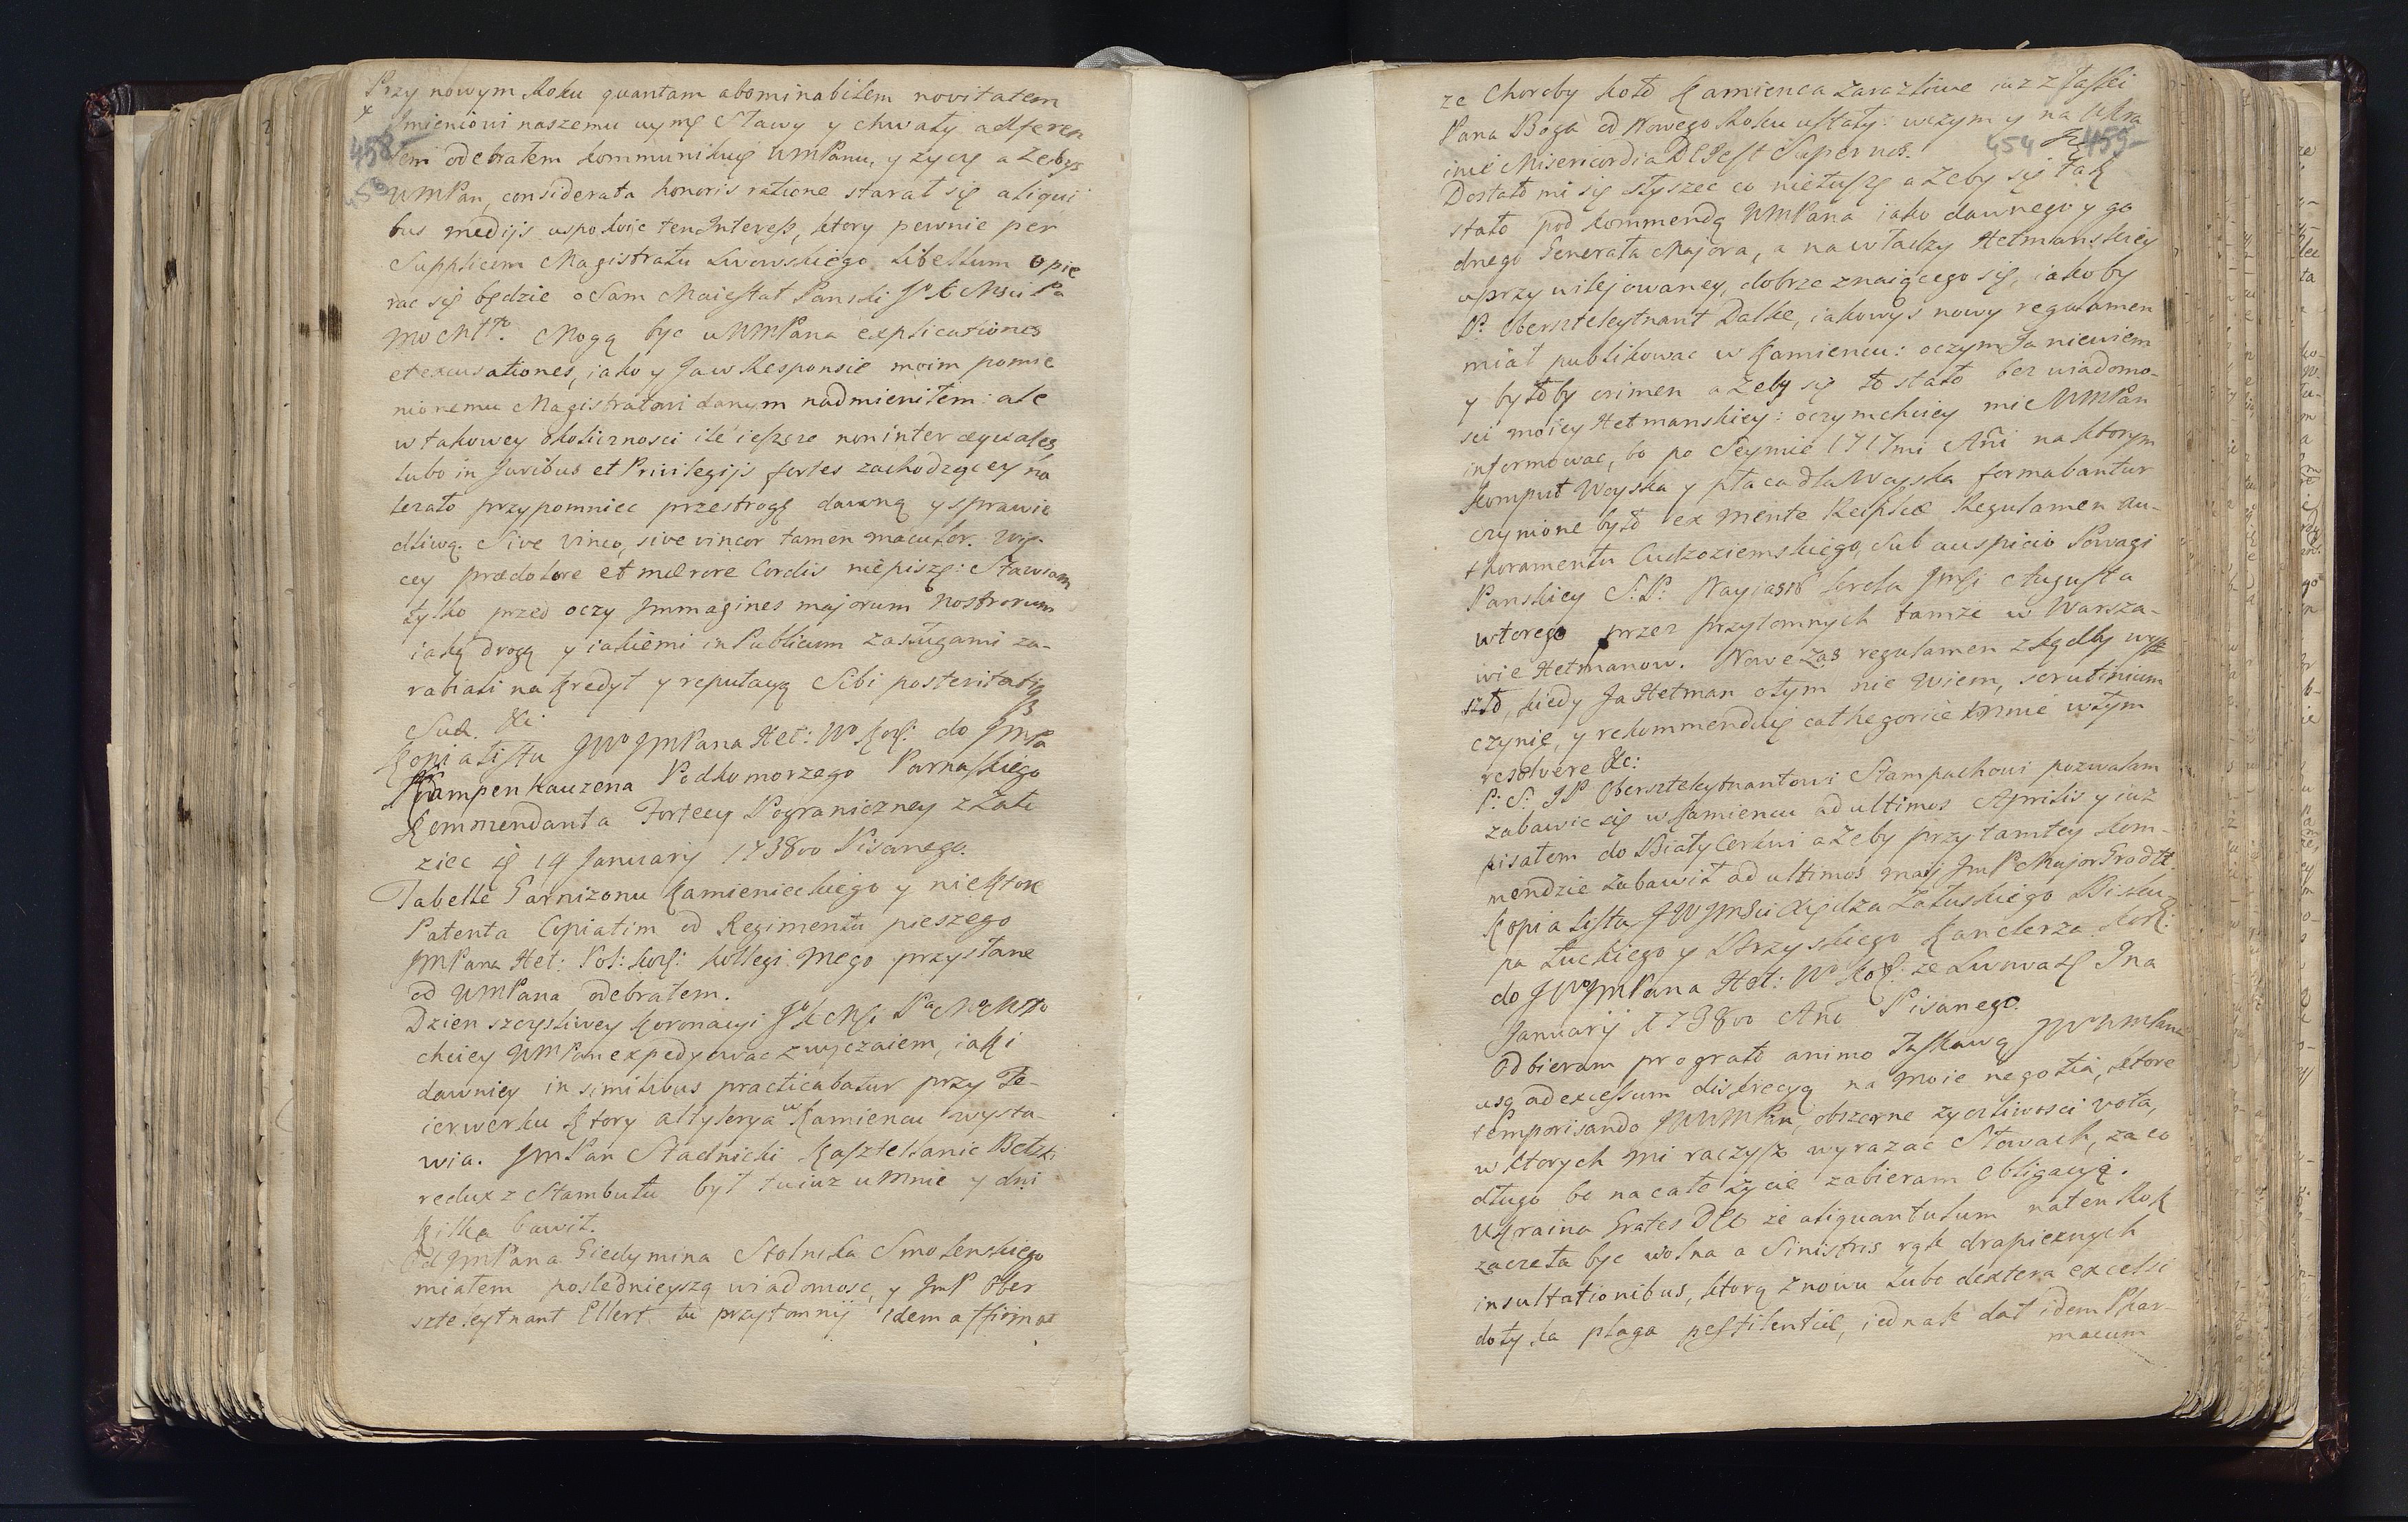 Przy nowym Roku quantam abominabilem novitatem
Imieniowi naszemu uymę Sławy y chwały adferen
458
tem odebrałem kommunikuię WMPanu, y zyczę azebys
WMPan, considerata honoris ratione starał się aliqui
bus medijs uspokoic ten Interess, ktory pewnie per
Supplicem Magistratu Lwowskiego libellum opie
rac się będzie o Sam Maiestat Panski JoKMsci Pa
Mo Młto. Mogą byc u WMPana explicationes
et excusationes, iako y Ja w Responsie moim pomie
nionemu Magistratowi danym nadmieniłem: ale
w takowey okolicznosci ile ieszcze non inter æquales
lubo in Juribus et Privilegijs fortes zachodzącey na
lezało przypomniec przestrogę dawną y sprawie
dliwą. Sive vinco, sive vincor tamen maculor. Wię-
cey præ dolore et mærore Cordis niepiszę: Stawiam
tylko przed oczy Immagines majorum nostrorum
iaką drogą y iakiemi in Publicum zasługami za-
rabiali na kredyt y reputacyą Sibi posteritatiq
Suæ. &c
Kopia listu JWo JmPana Het: Wo Kor: do JmPa
Kampenhauzena Podkomorzego Parnaskiego
Kommendanta Fortecy Pograniczney z Zału
ziec d 19 January 1738vo Pisanego.
Tabelle Garnizonu Kamienieckiego y niektore
Patenta Copiatim od Regimentu pieszego
JmPana Het: Pol: Kor: kollegi mego przysłane
od WMPana odebrałem.
Dzien szczęsliwey koronacyi JoKMsci Pa Mo Młto
chciey WMPan expedyowac zwyczaiem, iaki
dawniey in similibus practicabatur przy Fe-
ierwerku ktory altylerya w Kamiencu wysta-
wia. JmPan Stadnicki Kasztelanic Bełzki
redux z Stambułu był tu iuz u mnie y dni
kilka bawił.
Od JmPana Giedymina Stolnika Smolenskiego
miałem poslednieyszą wiadomosc, y JmP Ober
szteleytnant Ellert tu przytomnij idem affirmat
ze Choroby koło Kamienca zarazliwe iuz z łaski
Pana Boga od Nowego Roku ustały: w czym y na Ukra
454 459
inie Misericordia DEI est Super nos.
Dostało mi się słyszec co nietuszę azeby się tak
stało pod kommendą WMPana iako dawnego y go
dnego Generała Majora, a na władzy Hetmanskiey
uprzywilejowaney, dobrze znaiącego się, iakoby
P. Oberszteleytnant Dalke, iakowys nowy regulamen
miał publikowac w Kamiencu: o czym Ja niewiem
y byłoby crimen azeby się to stało bez wiadomo-
sci moiey Hetmanskiey: o czym chciey mie WMPan
informowac, bo po Seymie 1717mi Añi na ktorym
komput Woyska y płaca dla Woyska formabantur
czynione było ex mente Reiplcæ Regulamen au-
thoramentu Cudzoziemskiego, sub auspicio Powagi
Panskiey S: P: Nayiasn Krola Jmsi Augusta
wtorego przez przytomnych tamze w Warsza-
wie Hetmanow. Nowe zas regulamen zkądby wy
szło, kiedy Ja Hetman o tym nie wiem, scrutinium
czynię, y rekommenduię cathegorice mnie w tym
resolvere &c:
P: S: JP Oberszteleytnantowi Stampachowi pozwalam
zabawic się w Kamiencu ad ultimos Aprilis y iuz
pisałem do Biały Cerkwi azeby przy tamtey kom-
mendzie zabawił ad ultimos maij JmP Major Grodtt.
Kopia listu JWJmsci Xiędza Załuskiego Bisku
pa Łuckiego y Brzyskiego Kanclerza Kor:
do JWo JmPana Het: Wo Kor: ze Lwowa d Ina
Januarij 1738vo Año Pisanego.
Odbieram pro grato animo łaskawą JWWMPana
usq ad excessum diskrecyą na moie negotia, ktore
temporisando JWWMPan, obszerne zyczliwosci vota,
w ktorych mi raczysz wyrazac Słowach, za co
długo bo na całe zycie zabieram obligacyą.
Ukraina Grates DEO ze aliquantulum na ten Rok
zaczeła byc wolna a Sinistris rąk drapieznych
insultationibus, ktorą znowu lubo dextera excelsi
dotyka plaga pestilentiæ, iednak dat idem Phar-
macum